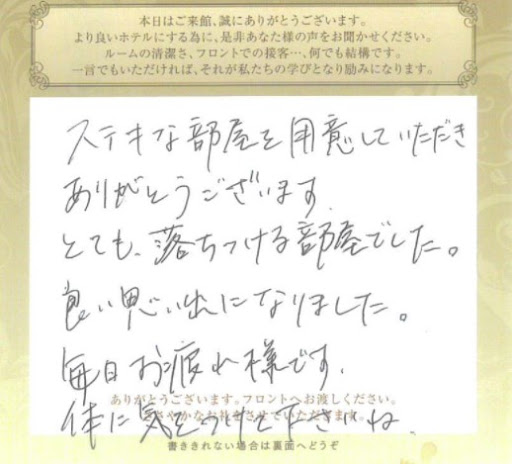 本日はご来館、誠にありがとうございます。
より良いホテルにする為に、是非あなた様の声をお聞かせください。
ルームの清潔さ、フロントでの接客…、何でも結構です。
一言でもいただければ、それが私たちの学びとなり励みになります。
ステキな部屋を用意していただき
ありがとうございます。
とても、落ちつける部屋でした。
良い思い出になりました。
毎日お疲れ様です。
ありがとうございます。フロントへお渡しください。
ささやかなお礼をさせていただきます。
体に気をつけて下さいね。
書ききれない場合は裏面へどうぞ